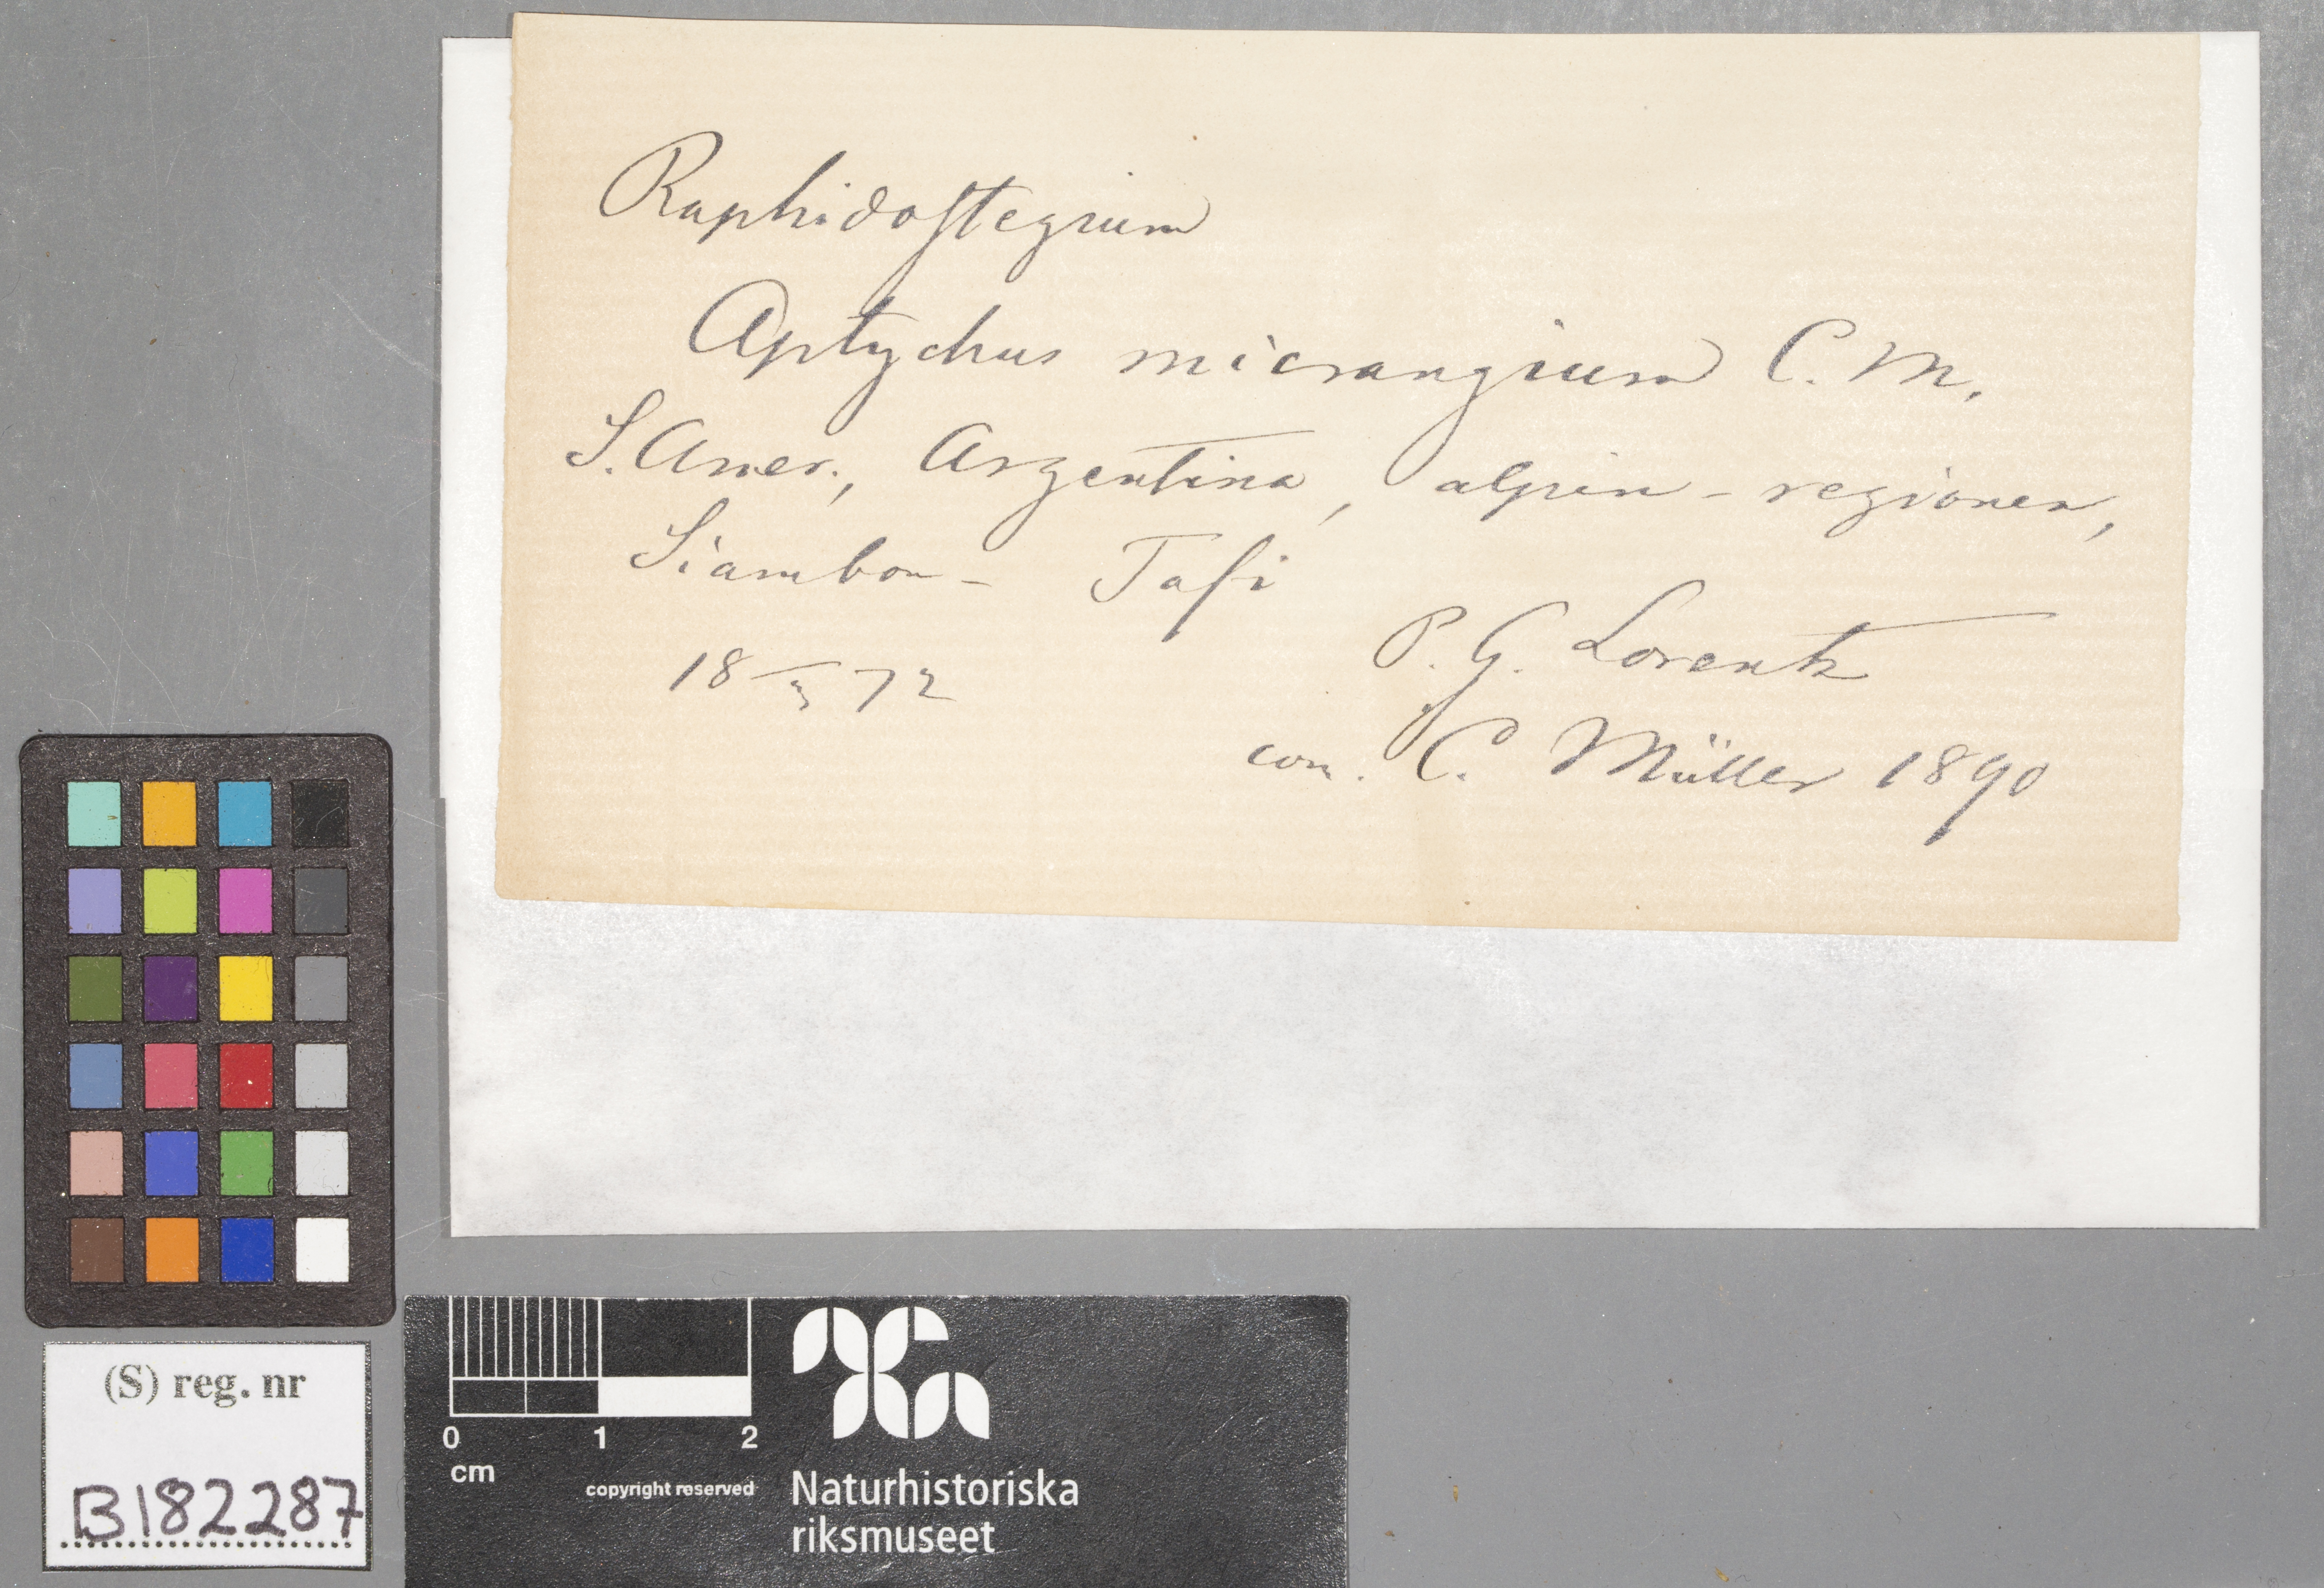 Raphidostegium
Aptychus micrangium C. M.
S. Amer., Argentina, alpin-regionen,
Siambon - Tafi
18 3/ 72
P. G. Lorentz
com. C. Müller 1890
(S) reg. nr
B182287
0 1 2
cm
copyright reserved
Naturhistoriska
riksmuseet